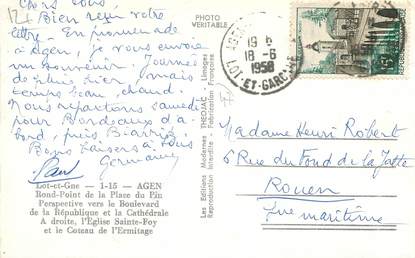 Chers tous,
Bien reçu votre
lettre. En promenade
à Agen, je vous envoie
un souvenir. Journée
de pluie hier, mais
temps beau, chaud.
Nous repartons samedi
pour Bordeaux d'a-
bord, puis Biarritz
Bons baisers à tous
Germaine
Paul
Lot-et-Gne — 1-15 — AGEN
Rond-Point de la Place du Pin
Perspective vers le Boulevard
de la République et la Cathédrale
A droite, l'Eglise Sainte-Foy
et le Coteau de l'Ermitage
PHOTO
VERITABLE
Les Editions Modernes THEOJAC - Limoges
Reproduction Interdite - Fabrication Française
AGEN
19 H
18-6
1958
LOT-ET-GARONNE
Madame Henri Robert
6 Rue du Fond de la Jatte
Rouen
Sne maritime